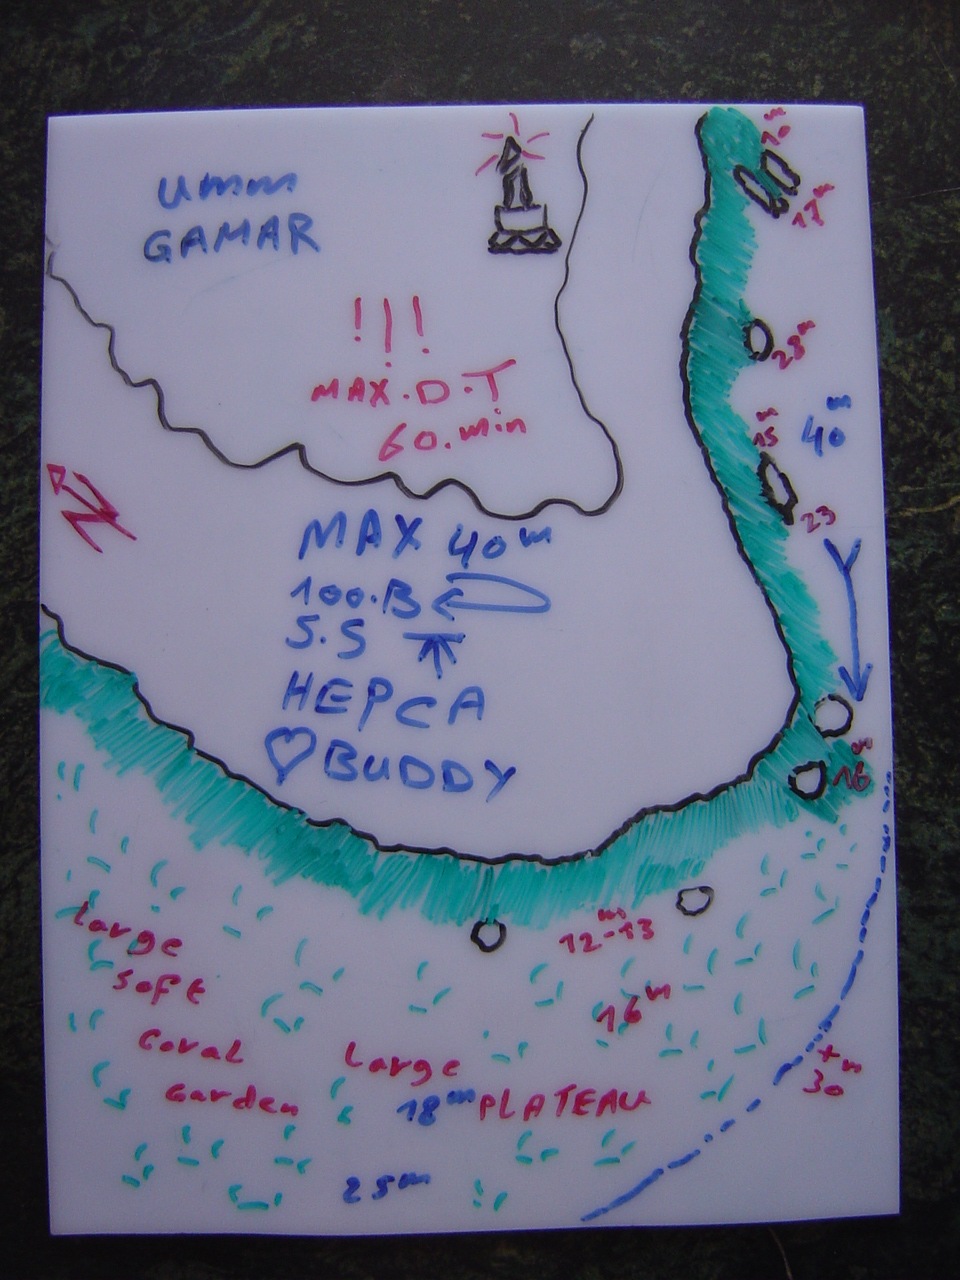 umm
GAMAR
!!!
MAX.D.T
60.min
N
MAX 40m
100.B
S.S
HEPCA
BUDDY
17m
28m
15m
40m
23
12-13m
16m
Large
Soft
Coral
Garden
Large
18m PLATEAU
+30m
25m